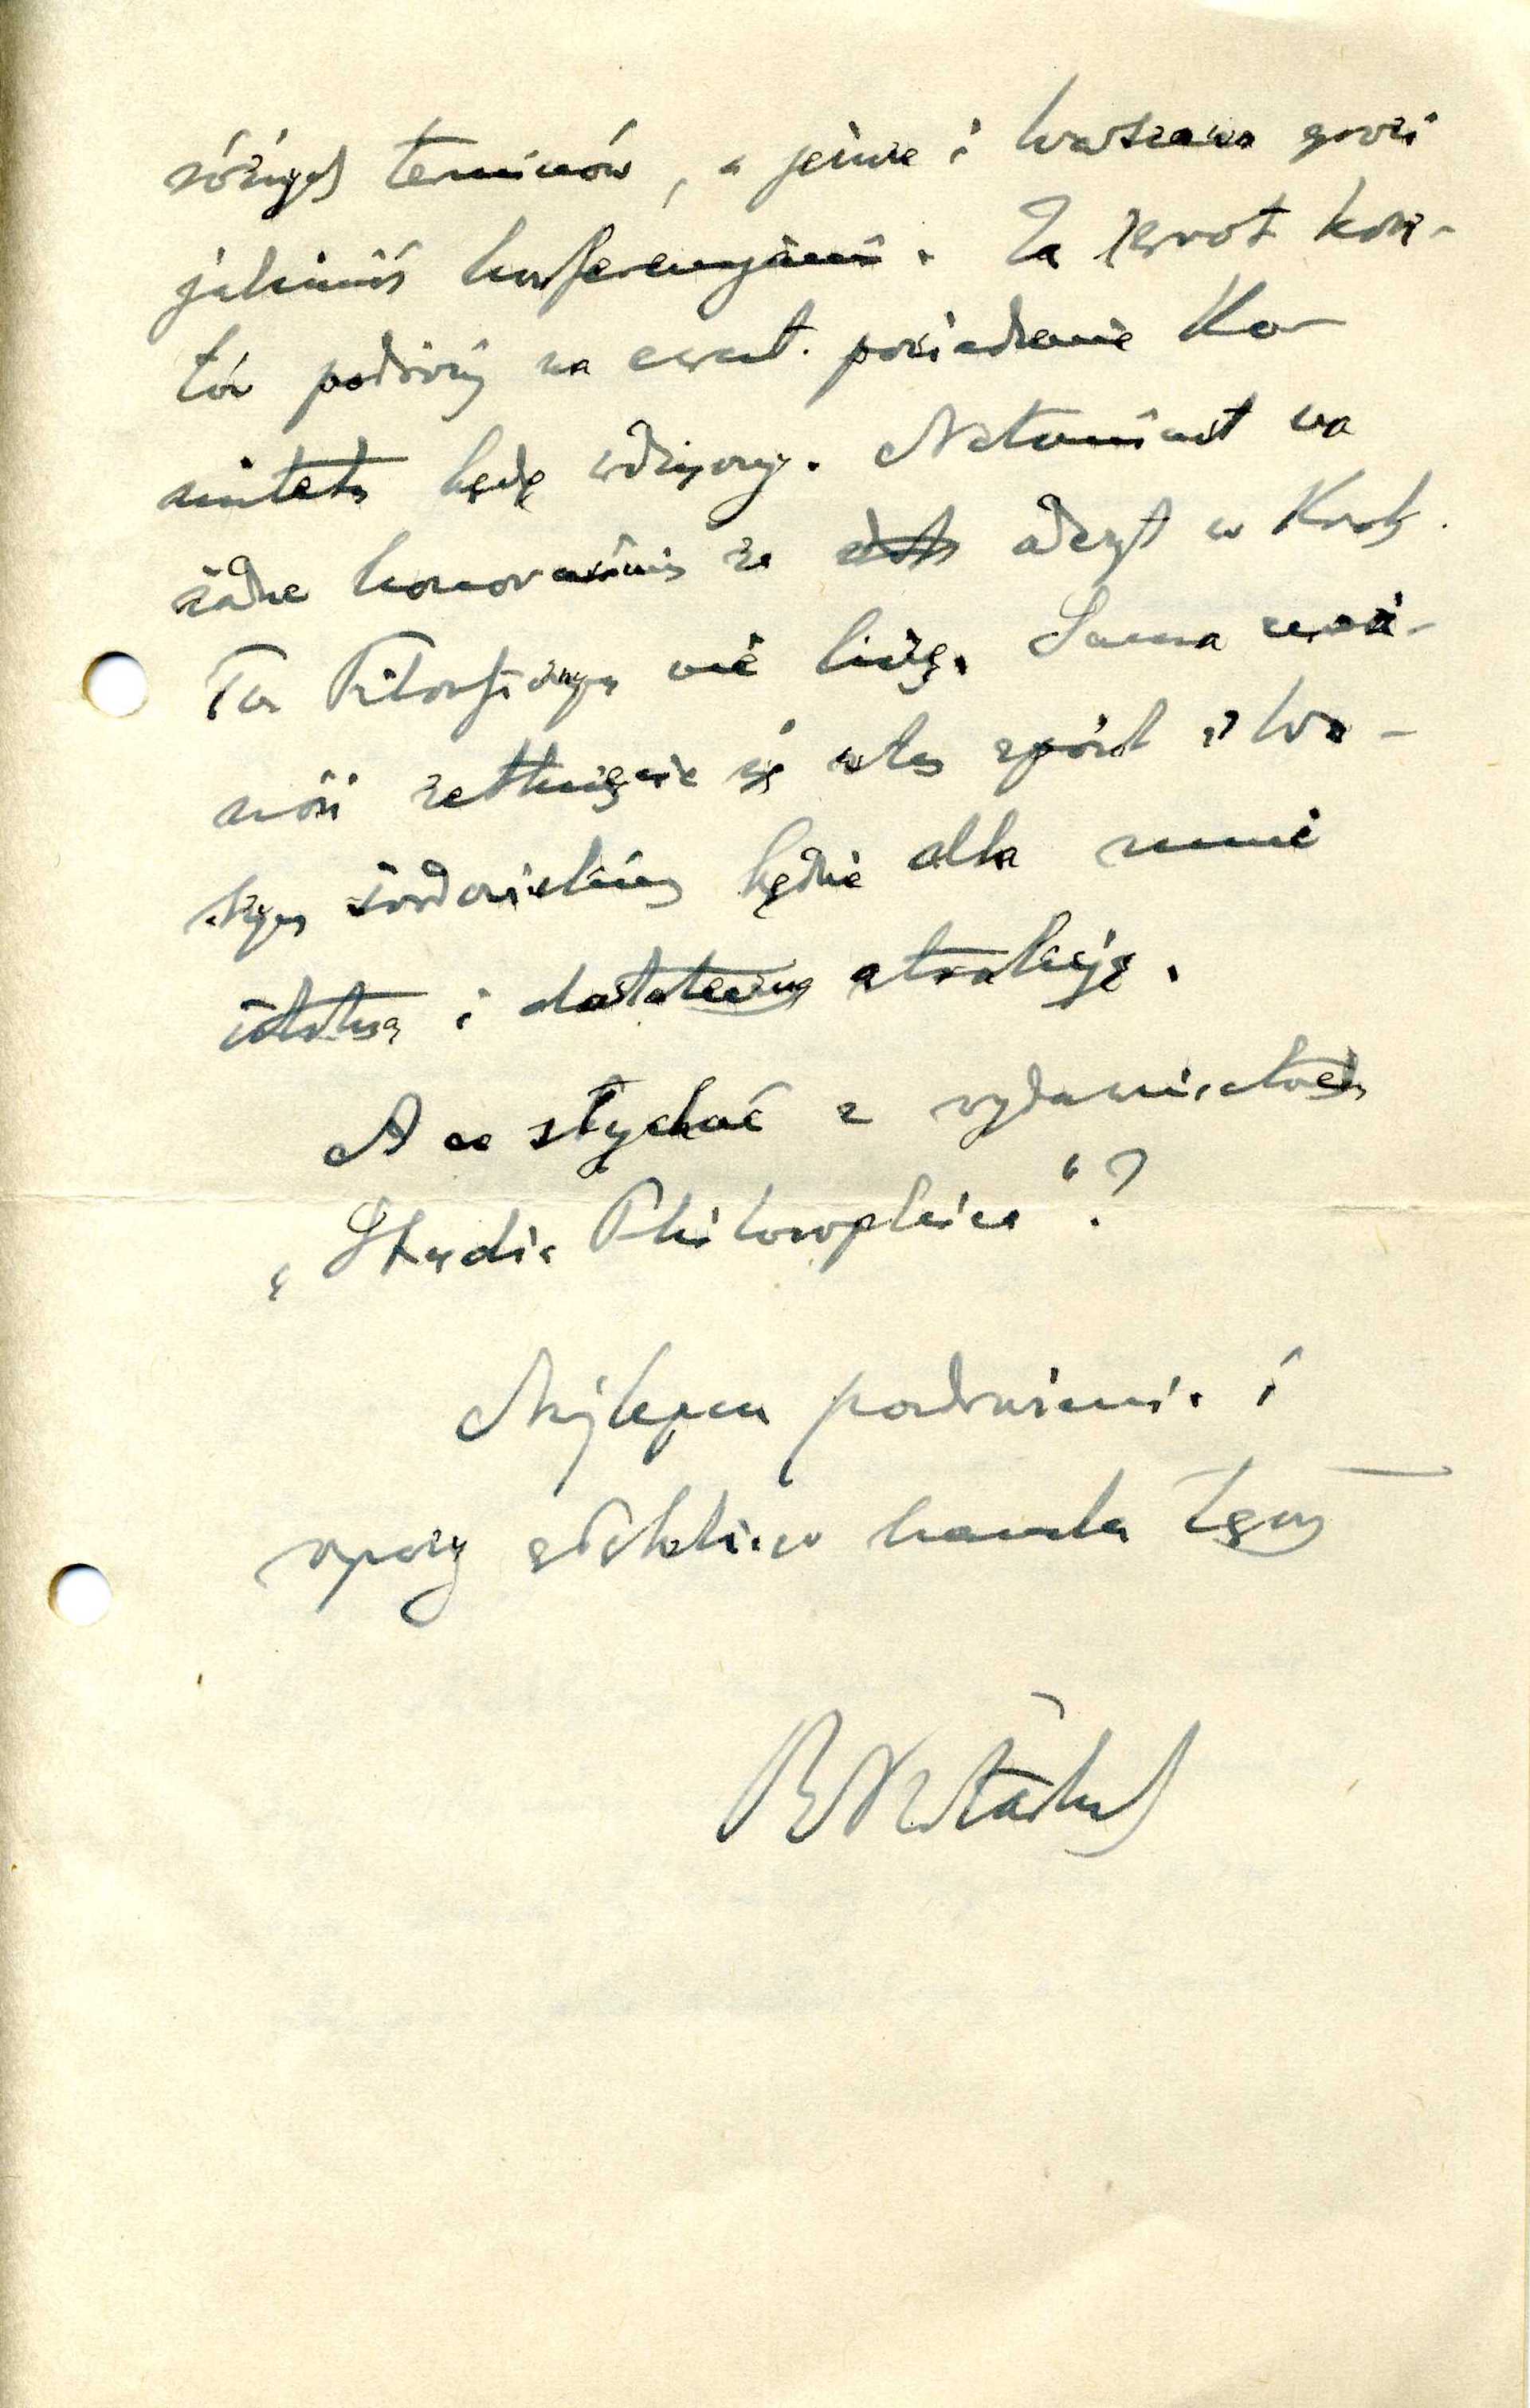 różnych terminów, a jeszcze i Warszawa grozi
jakimiś konferencjami. Za zwrot kosz-
tów podróży na ewent. posiedzenie Ko-
mitetu będę wdzięczny. Natomiast na
żadne honorarium za odczyt w Krak.
Tow Filozoficznym nie liczę. Sama moż-
ność zetknięcia się z tym
środowiskiem będzie dla mnie
istotną i dostateczną atrakcją.
A co słychać z wydawnictwem
„Studia Philosophica“?
Najlepsze pozdrowienia i
wyrazy załączam